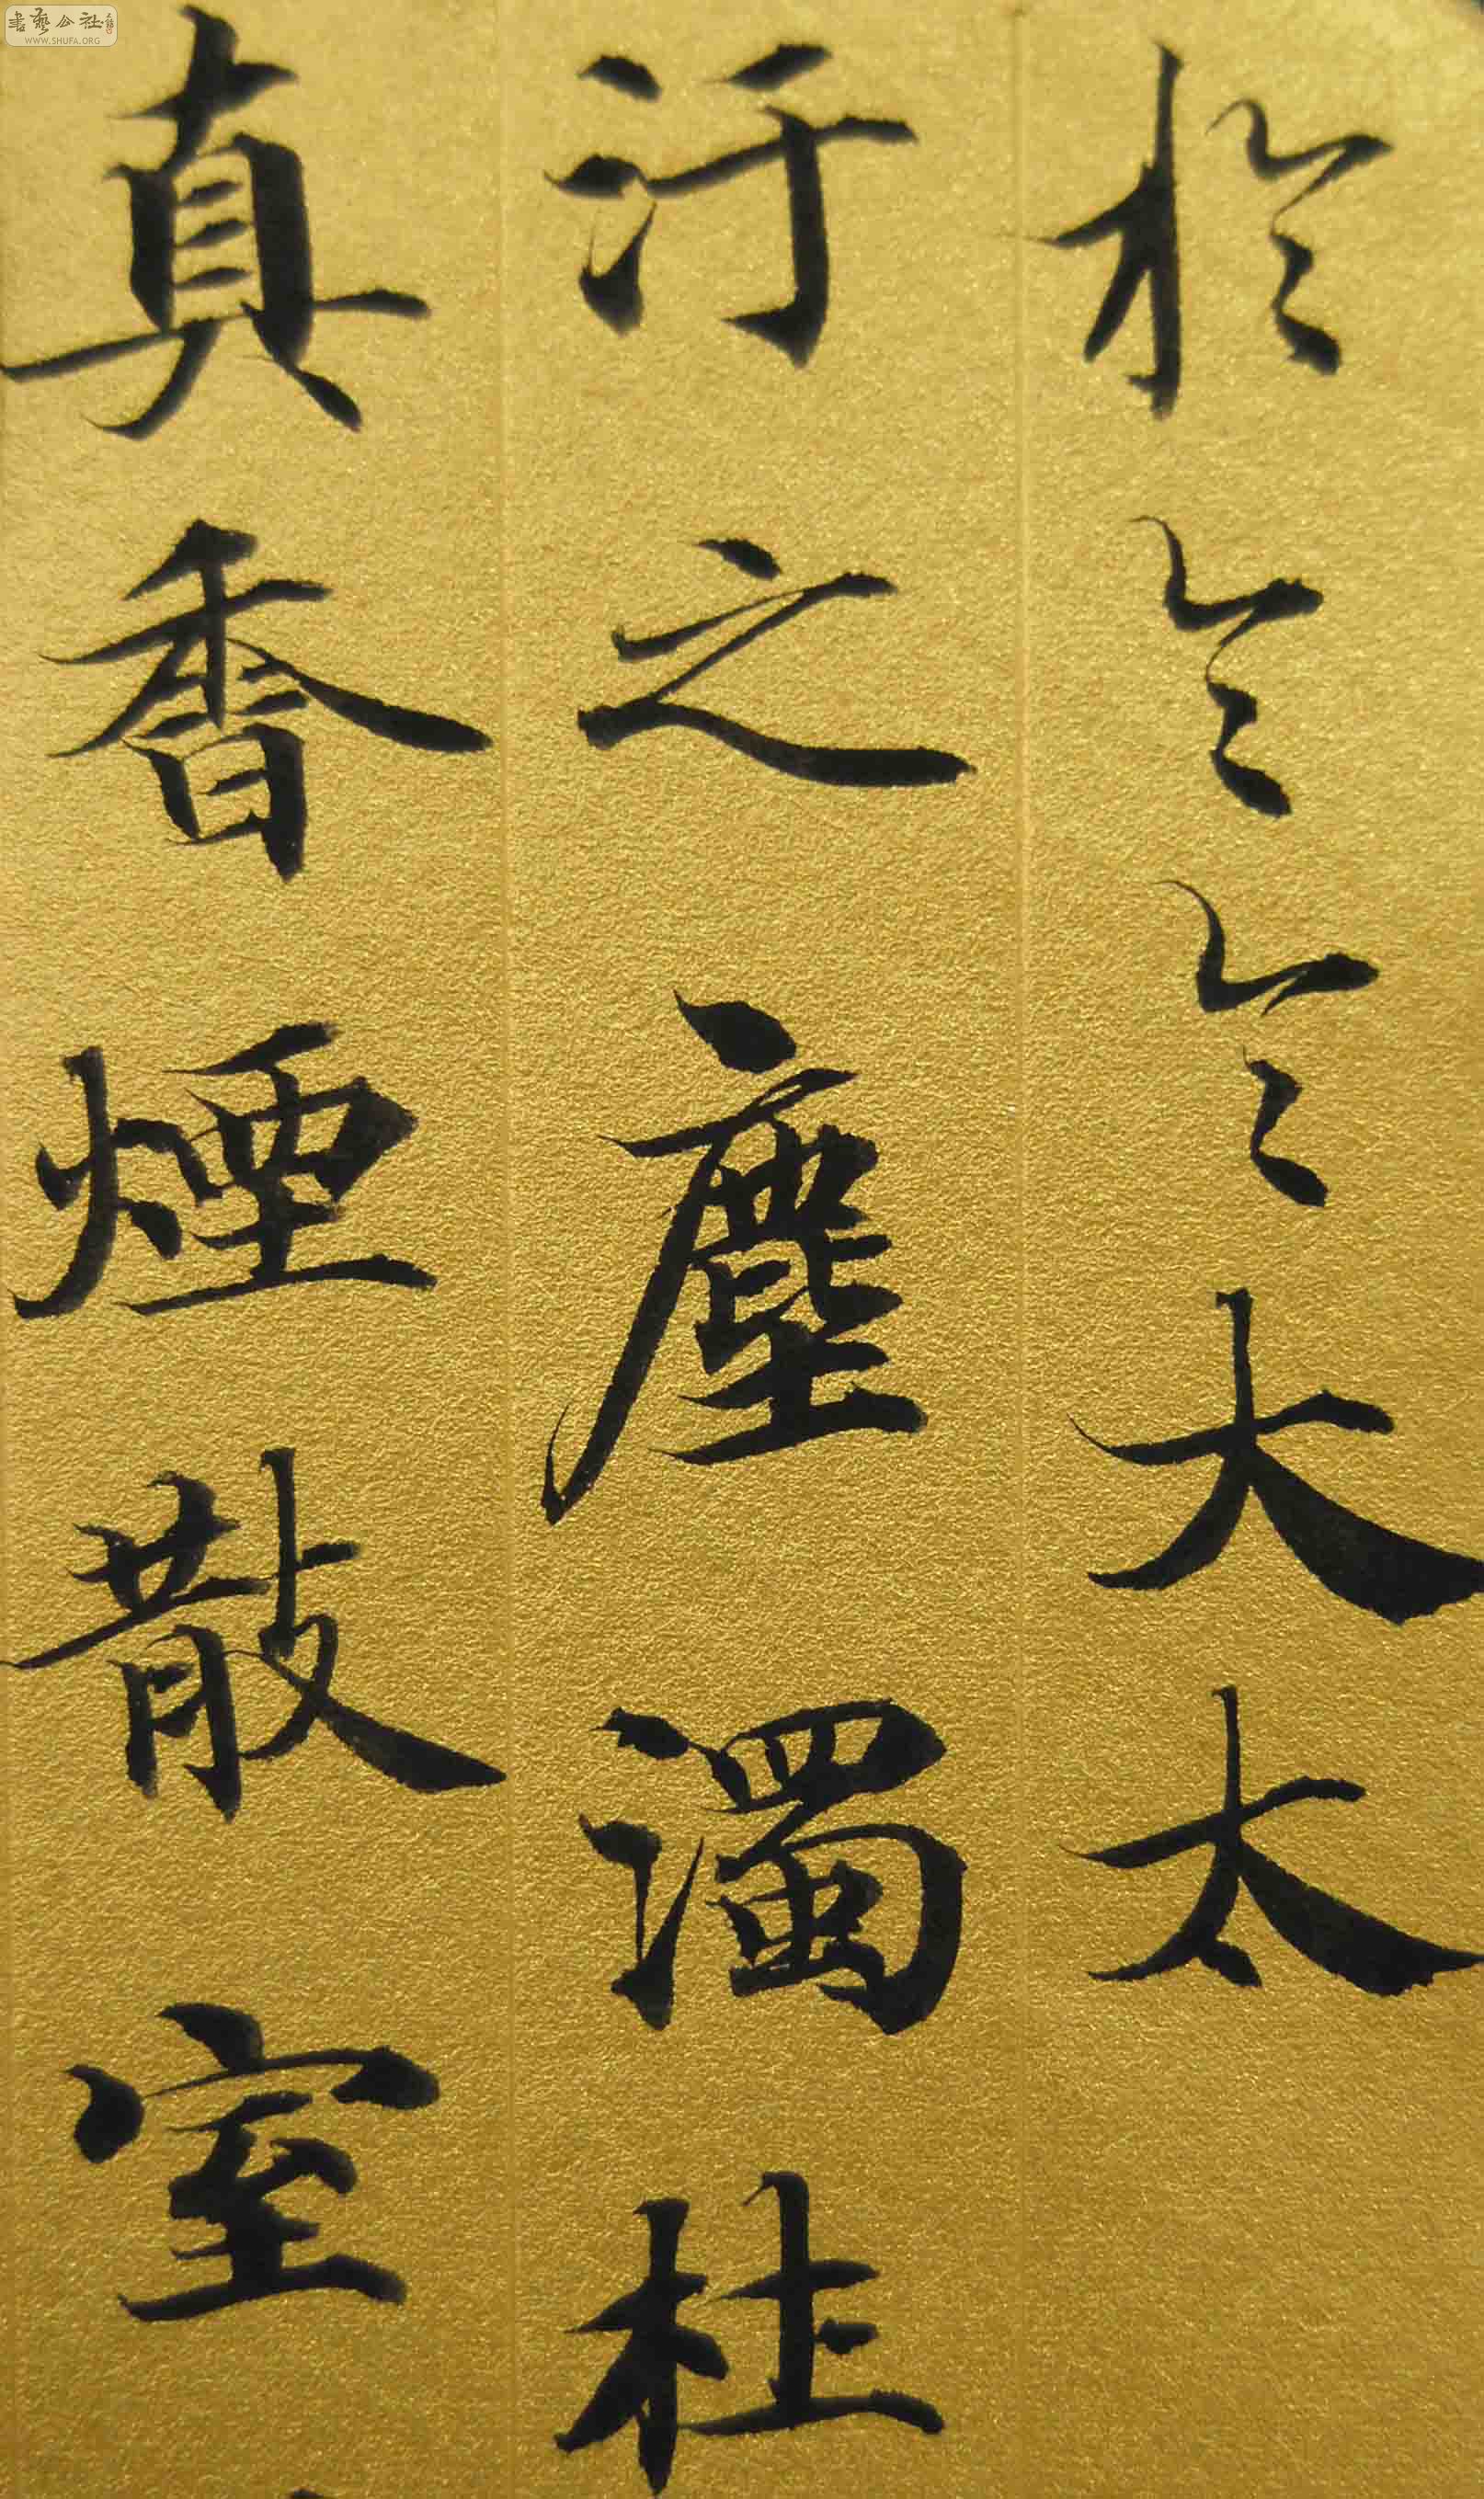 書藝公社
WWW.SHUFA.ORG
於大太
汙之塵濁柱
真香煙散室